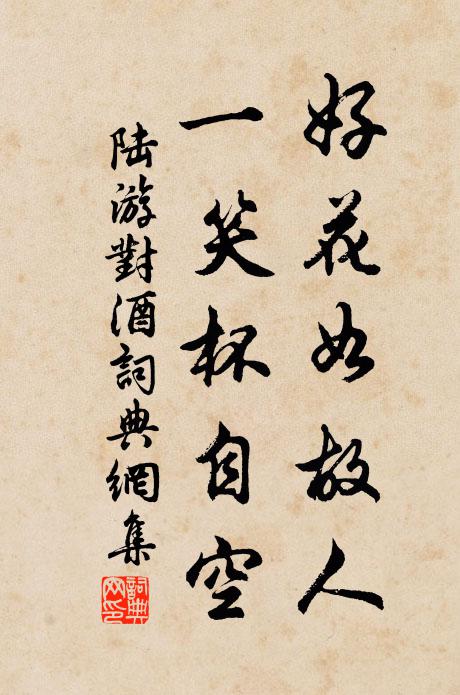 好花如故人
一笑杯自空
陆游對酒詞典網集
詞典
网印